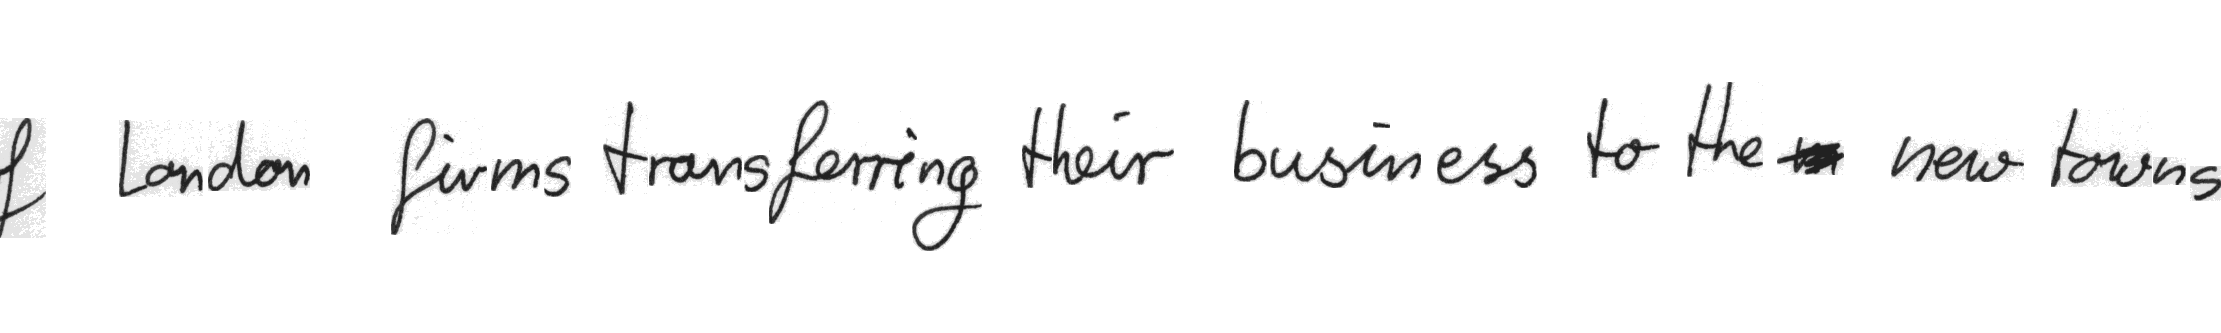 f London firms transferring their business to the new towns